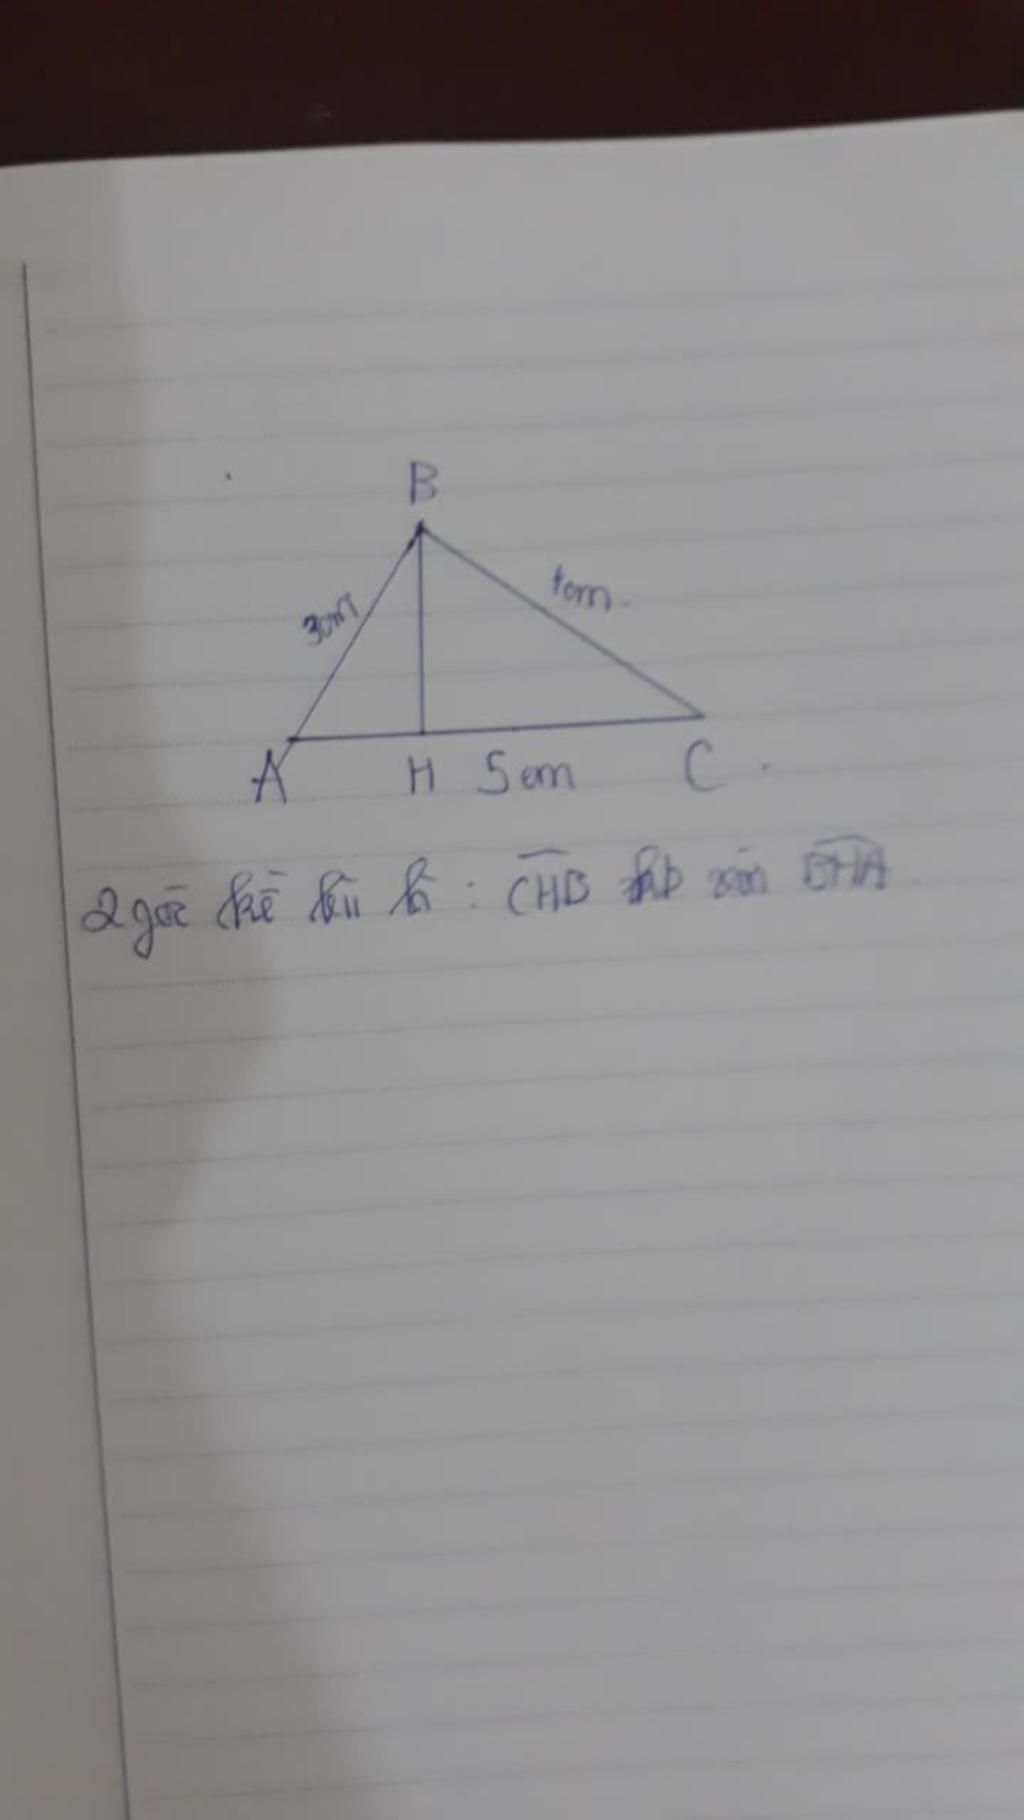 B
3cm
A H 5cm C
2 góc kề bù là : CHB BHA